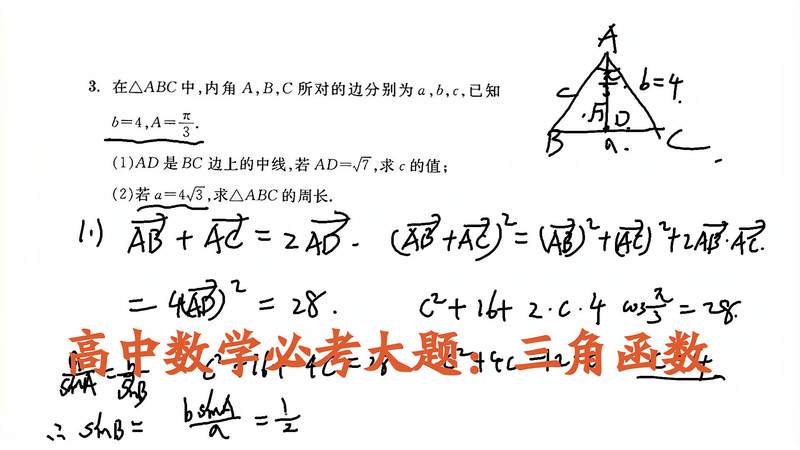 3. 在△ABC中,内角A,B,C所对的边分别为a,b,c,已知
b=4,A=π/3.
(1)AD是BC边上的中线,若AD=√7,求c的值;
(2)若a=4√3,求△ABC的周长.
A
c
b=4.
√7
B
D
C
a
(1) AB→ + AC→ = 2AD→. (AB→+AC→)²=(AB→)²+(AC→)²+2AB→·AC→.
= 4(AD→)² = 28. c²+16+2·c·4 cosπ/3=28.
高中数学必考大题：三角函数
a/sinA=b/sinB c²+16+4c=28 c²+4c=12
∴ sinB= bsinA/a =1/2